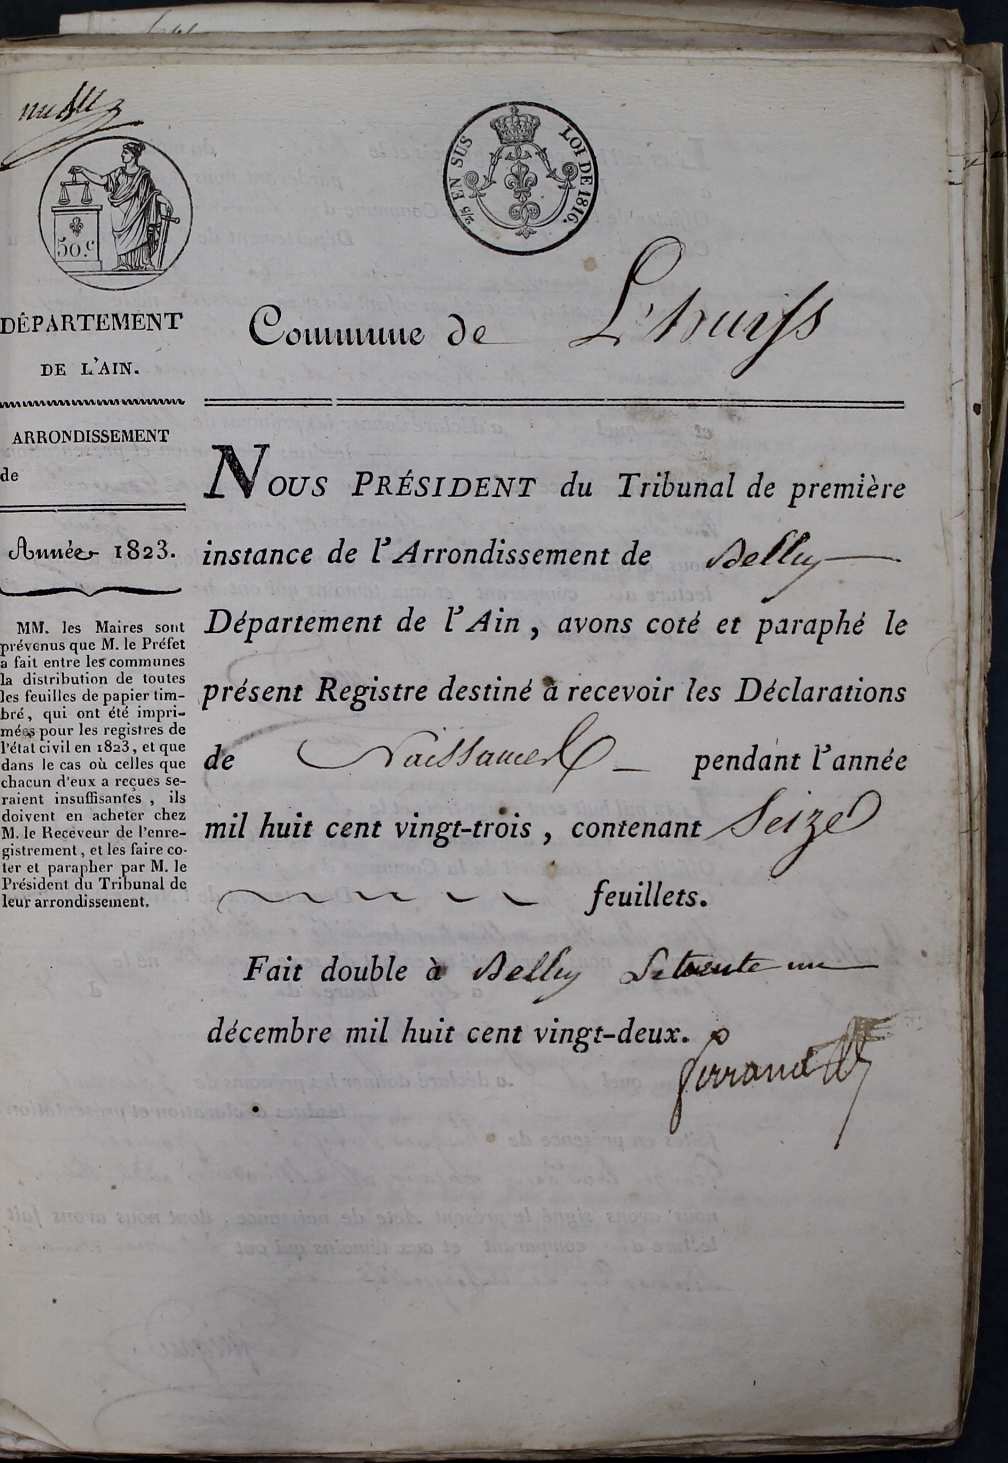 2/5 EN SUS
LOI DE 1816.
50.c
DÉPARTEMENT
DE L'AIN.
ARRONDISSEMENT
de
Année 1823.
MM. les Maires sont
prévenus que M. le Préfet
a fait entre les communes
la distribution de toutes
les feuilles de papier tim-
bré, qui ont été impri-
mées pour les registres de
l'état civil en 1823, et que
dans le cas où celles que
chacun d'eux a reçues se-
raient insuffisantes, ils
doivent en acheter chez
M. le Receveur de l'enre-
gistrement, et les faire co-
ter et parapher par M. le
Président du Tribunal de
leur arrondissement.
Commune de L'huiss
NOUS PRÉSIDENT du Tribunal de première
instance de l'Arrondissement de Belley
Département de l'Ain, avons coté et paraphé le
présent Registre destiné à recevoir les Déclarations
de Naissances pendant l'année
mil huit cent vingt-trois, contenant Seize
feuillets.
Fait double à Belley Le trente un
décembre mil huit cent vingt-deux.